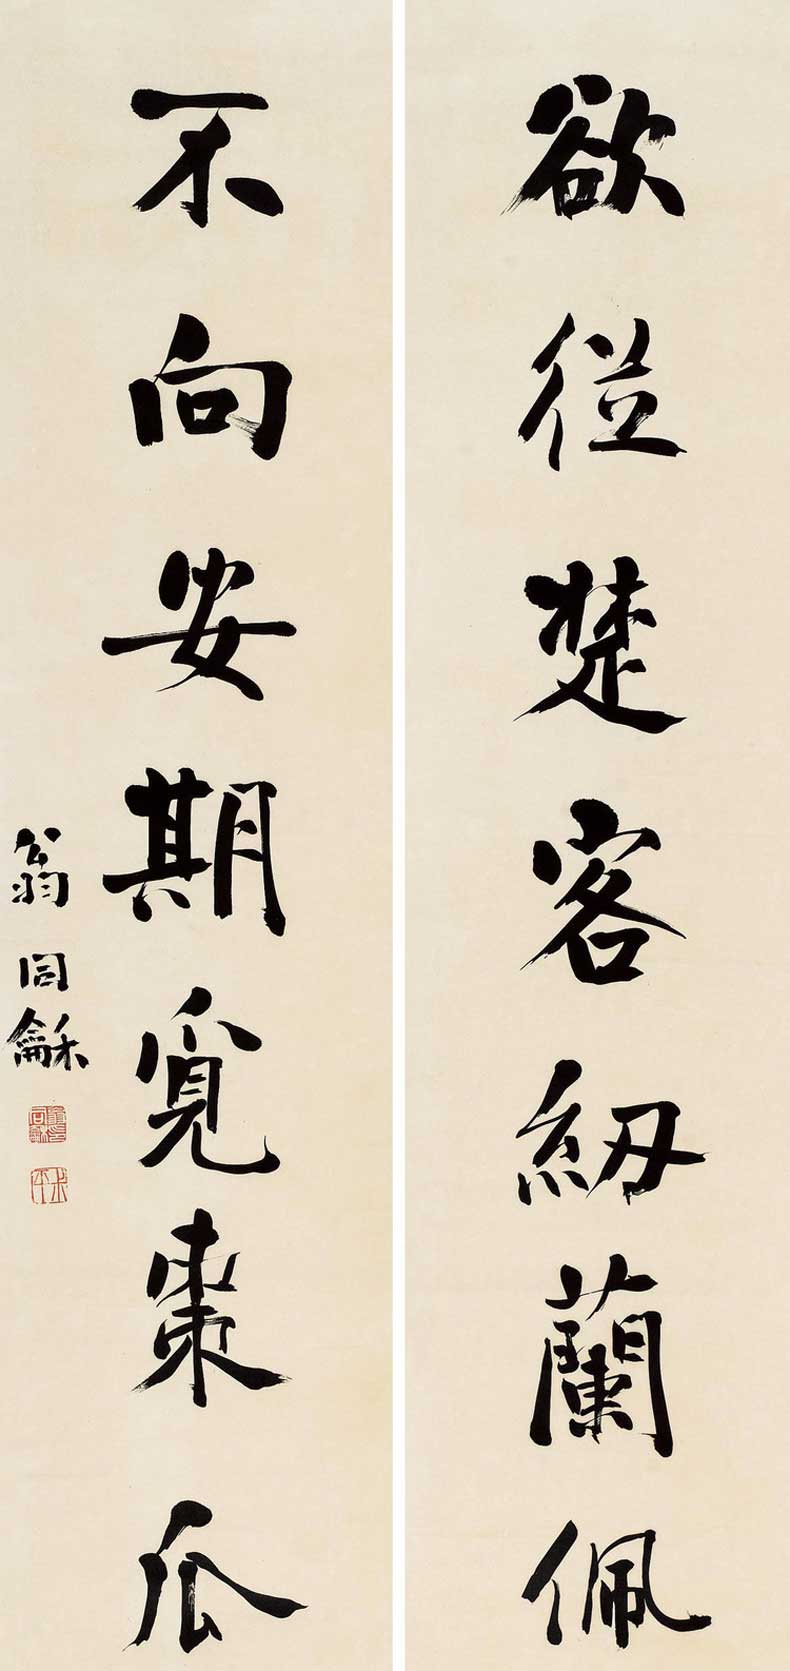 欲從楚客紉蘭佩
不向安期覓棗瓜
翁同龢